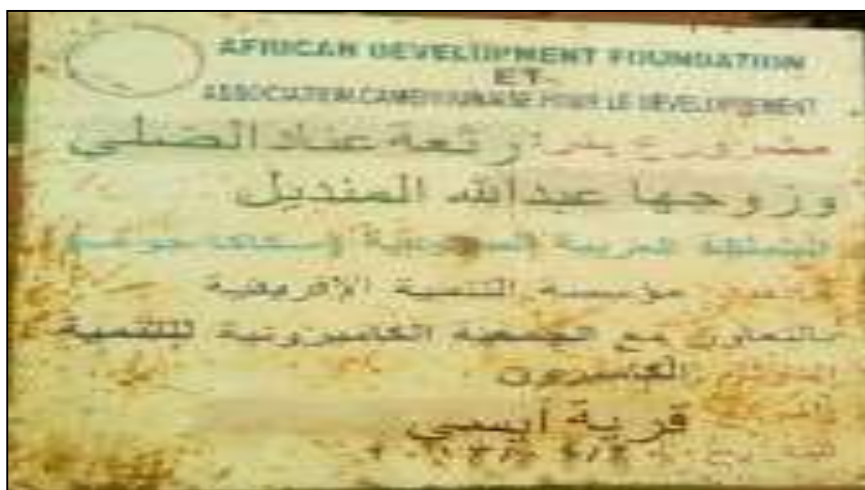 AFRICAN DEVELOPMENT FOUNDATION
ET
ASSOCIATION CAMEROUNAISE POUR LE DEVELOPPEMENT
بئر: رتعة عناد الضلي
وزوجها عبدالله المنديل
المملكة العربية السعودية (سكاكا
مؤسسة التنمية الأفريقية
بالتعاون مع الجمعية الكاميرونية للتنمية
الكاميرون
قرية ايسي